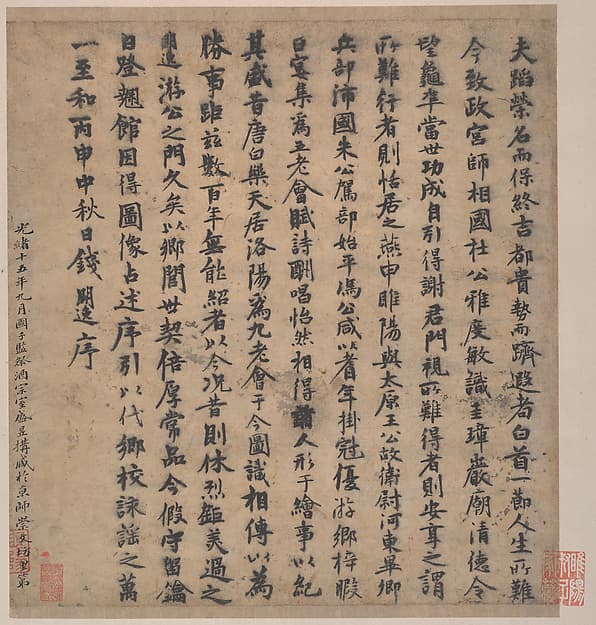 夫蹈榮名而保終吉都貴勢而躋遐耇白首一節人生所難
今致政宮師相國杜公雅度敏識圭璋巖廟清德令
望龜準當世功成自引得謝君門視所難得者則安享之謂
所難行者則恬居之燕申睢陽與太原王公故衛尉河東畢卿
兵部沛國朱公駕部始平馮公咸以耆年掛冠優游鄉梓暇
日宴集為五老會賦詩酬唱怡然相得諸人形于繪事以紀
其盛昔唐白樂天居洛陽為九老會于今圖識相傳以為
勝事距茲數百年無能紹者以今況昔則休烈鉅美過之
明逸游公之門久矣以鄉閭世契倍厚常品今假守留鑰
日登翹館因得圖像占述序引以代鄉校詠謠之萬
一至和丙申中秋日錢明逸序
光緒十五年九月國子監祭酒宗室盛昱搆藏於京師崇文坊里第